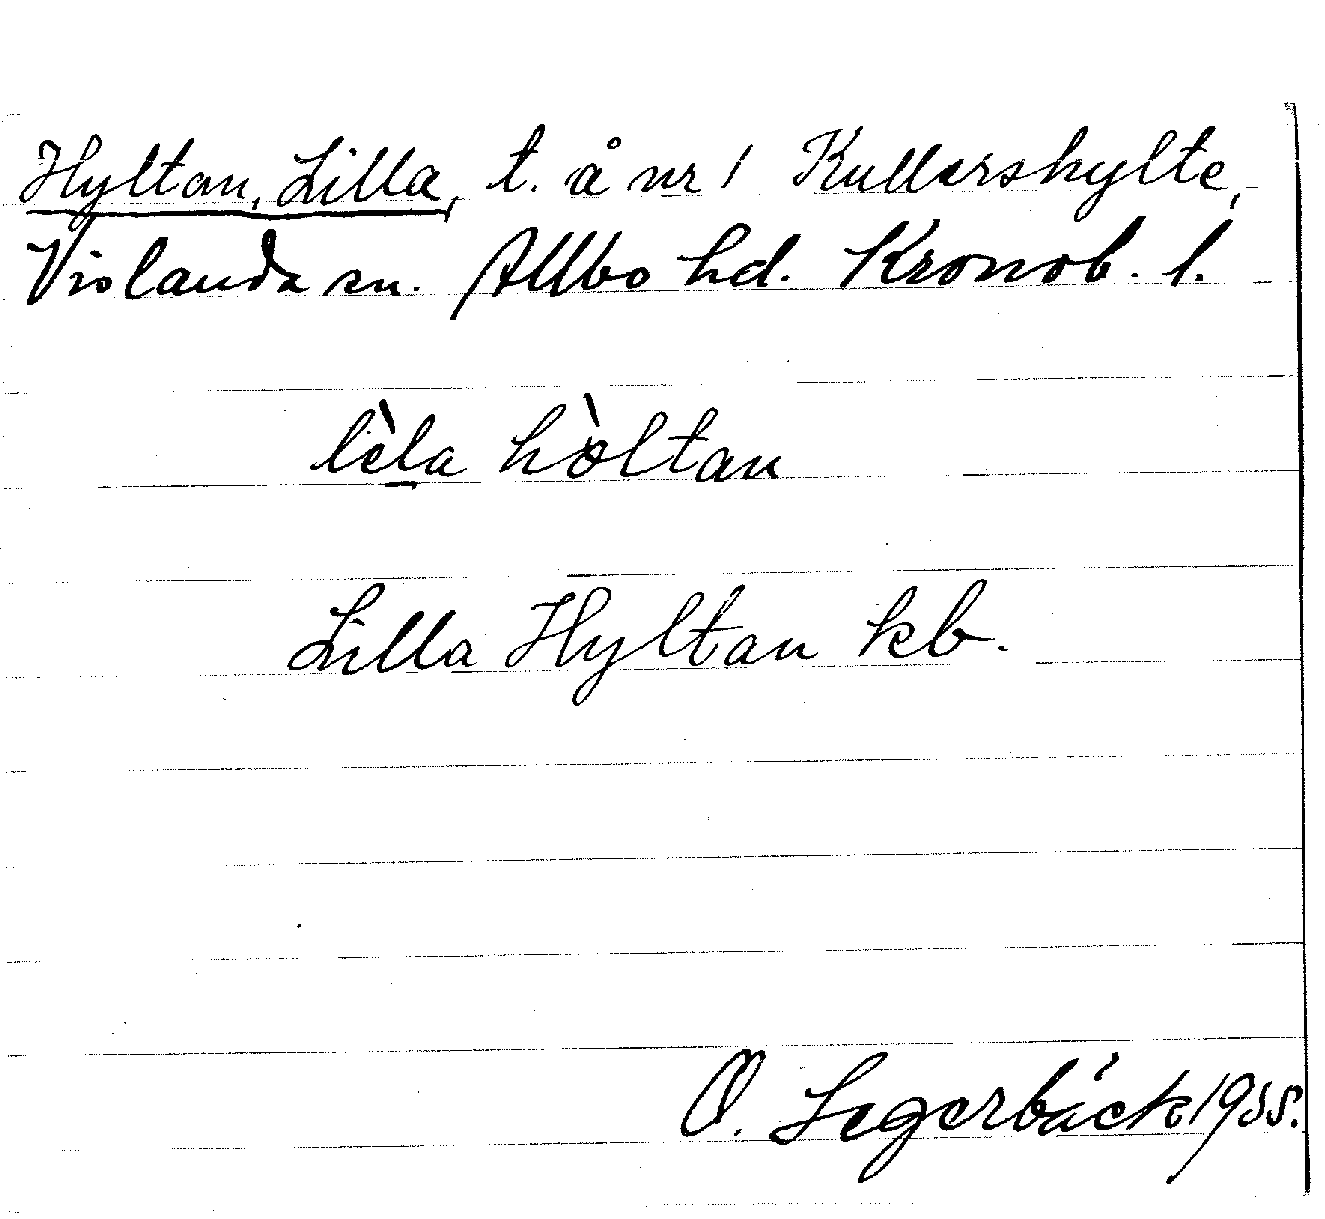 Hyltan, Lilla, t. å nr 1 Kullershylte,
Vislanda sn. Allbo hd. Kronob. l.
lèla hòltan
Lilla Hyltan kb.
O. Segerbäck 1935.